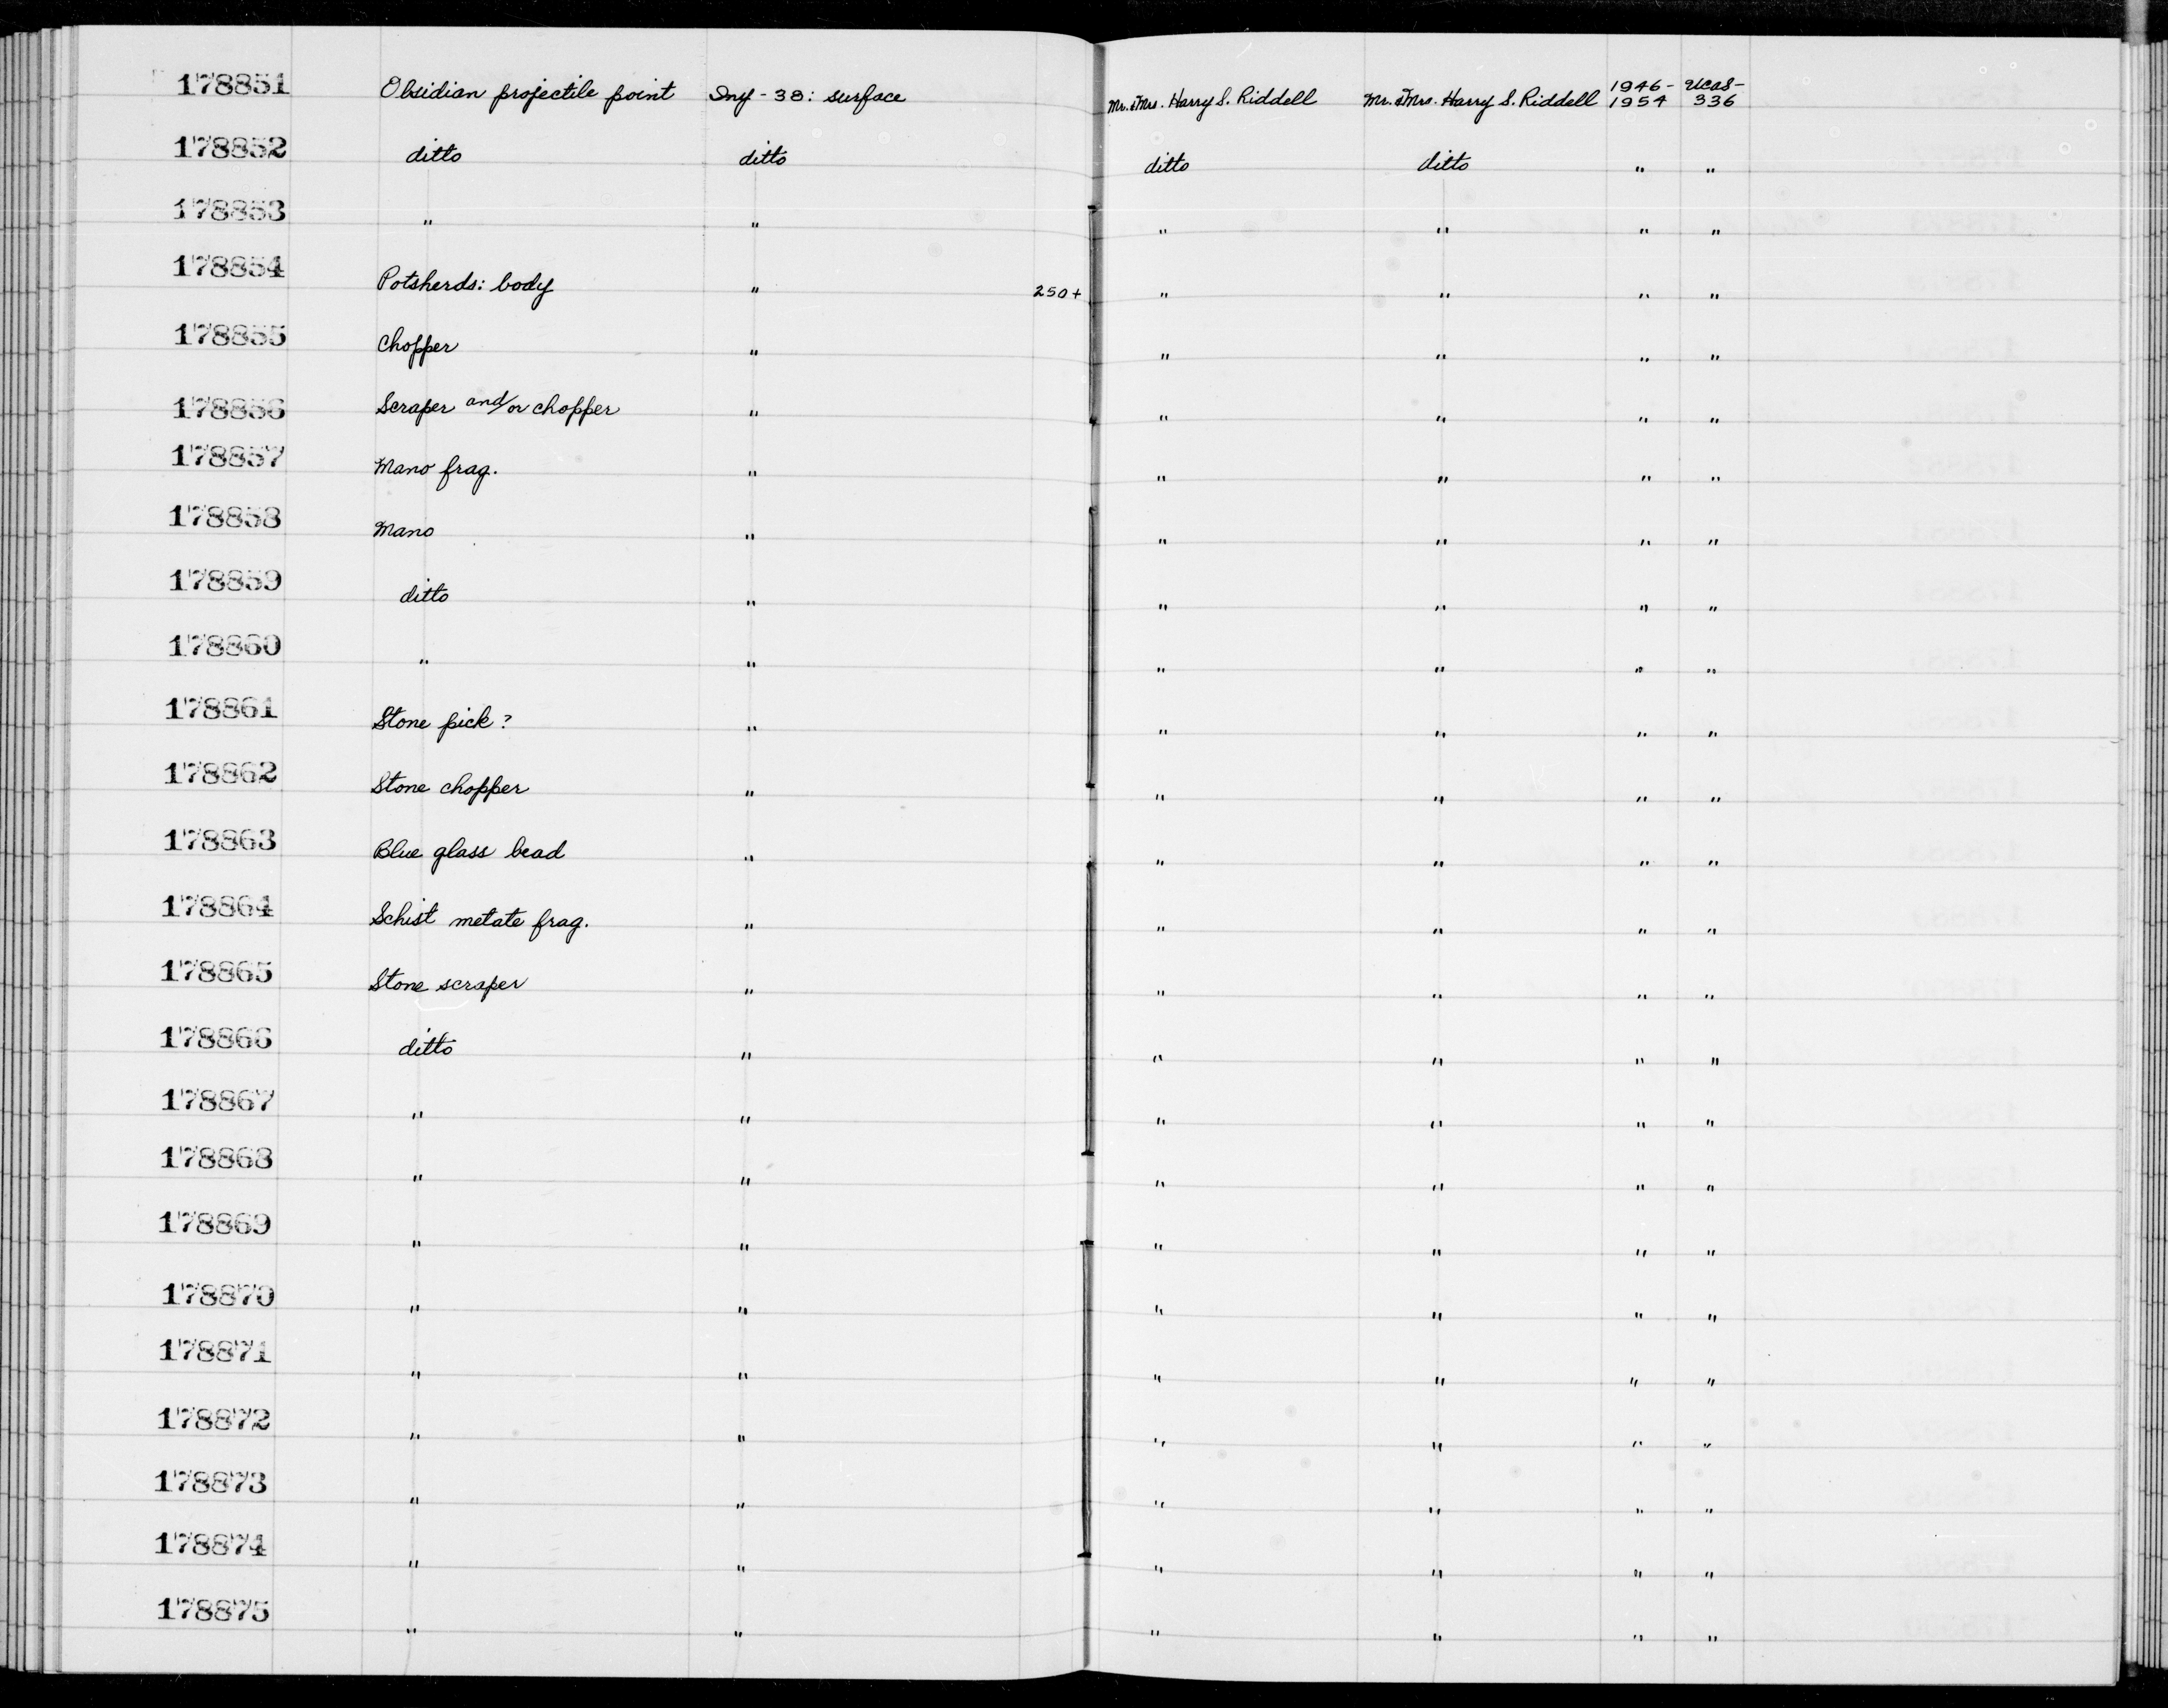 178851 Obsidian projectile point Iny - 38: surface Mr. & Mrs. Harry S. Riddell Mr. & Mrs. Harry S. Riddell 1946-1954 UCAS-336
178852 ditto ditto ditto ditto " "
178853 " " " " " "
178854 Potsherds: body " 250+ " " " "
178855 Chopper " " " " "
178856 Scraper and/or chopper " " " " "
178857 Mano frag. " " " " "
178858 Mano " " " " "
178859 ditto " " " " "
178860 " " " " " "
178861 Stone pick? " " " " "
178862 Stone chopper " " " " "
178863 Blue glass bead " " " " "
178864 Schist metate frag. " " " " "
178865 Stone scraper " " " " "
178866 ditto " " " " "
178867 " " " " " "
178868 " " " " " "
178869 " " " " " "
178870 " " " " " "
178871 " " " " " "
178872 " " " " " "
178873 " " " " " "
178874 " " " " " "
178875 " " " " " "